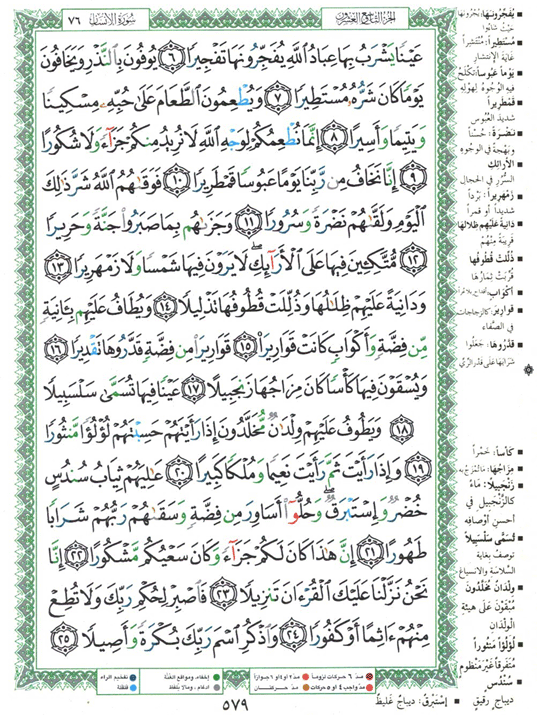 الجزء التاسع والعشرون
سورة الإنسان ٧٦
عَيْنًا يَشْرَبُ بِهَا عِبَادُ اللَّهِ يُفَجِّرُونَهَا تَفْجِيرًا ٦ يُوفُونَ بِالنَّذْرِ وَيَخَافُونَ
يَوْمًا كَانَ شَرُّهُ مُسْتَطِيرًا ٧ وَيُطْعِمُونَ الطَّعَامَ عَلَىٰ حُبِّهِ مِسْكِينًا
وَيَتِيمًا وَأَسِيرًا ٨ إِنَّمَا نُطْعِمُكُمْ لِوَجْهِ اللَّهِ لَا نُرِيدُ مِنكُمْ جَزَاءً وَلَا شُكُورًا
٩ إِنَّا نَخَافُ مِن رَّبِّنَا يَوْمًا عَبُوسًا قَمْطَرِيرًا ١٠ فَوَقَاهُمُ اللَّهُ شَرَّ ذَٰلِكَ
الْيَوْمِ وَلَقَّاهُمْ نَضْرَةً وَسُرُورًا ١١ وَجَزَاهُم بِمَا صَبَرُوا جَنَّةً وَحَرِيرًا
١٢ مُّتَّكِئِينَ فِيهَا عَلَى الْأَرَائِكِ لَا يَرَوْنَ فِيهَا شَمْسًا وَلَا زَمْهَرِيرًا ١٣
وَدَانِيَةً عَلَيْهِمْ ظِلَالُهَا وَذُلِّلَتْ قُطُوفُهَا تَذْلِيلًا ١٤ وَيُطَافُ عَلَيْهِم بِآنِيَةٍ
مِّن فِضَّةٍ وَأَكْوَابٍ كَانَتْ قَوَارِيرَا ١٥ قَوَارِيرَا مِن فِضَّةٍ قَدَّرُوهَا تَقْدِيرًا ١٦
وَيُسْقَوْنَ فِيهَا كَأْسًا كَانَ مِزَاجُهَا زَنجَبِيلًا ١٧ عَيْنًا فِيهَا تُسَمَّىٰ سَلْسَبِيلًا
١٨ وَيَطُوفُ عَلَيْهِمْ وِلْدَانٌ مُّخَلَّدُونَ إِذَا رَأَيْتَهُمْ حَسِبْتَهُمْ لُؤْلُؤًا مَّنثُورًا
١٩ وَإِذَا رَأَيْتَ ثَمَّ رَأَيْتَ نَعِيمًا وَمُلْكًا كَبِيرًا ٢٠ عَالِيَهُمْ ثِيَابُ سُندُسٍ
خُضْرٌ وَإِسْتَبْرَقٌ وَحُلُّوا أَسَاوِرَ مِن فِضَّةٍ وَسَقَاهُمْ رَبُّهُمْ شَرَابًا
طَهُورًا ٢١ إِنَّ هَٰذَا كَانَ لَكُمْ جَزَاءً وَكَانَ سَعْيُكُم مَّشْكُورًا ٢٢ إِنَّا
نَحْنُ نَزَّلْنَا عَلَيْكَ الْقُرْآنَ تَنزِيلًا ٢٣ فَاصْبِرْ لِحُكْمِ رَبِّكَ وَلَا تُطِعْ
مِنْهُمْ آثِمًا أَوْ كَفُورًا ٢٤ وَاذْكُرِ اسْمَ رَبِّكَ بُكْرَةً وَأَصِيلًا ٢٥
يُفَجِّرُونَها: يُجْرُونَها
حيث شاؤوا
مُسْتَطِيراً: مُنْتَشِراً
غايةَ الانتشارِ
يَوْماً عَبُوساً: تَكْلَحُ
فيه الوجوهُ لِهَوْلِه
قَمْطَرِيراً
شديدَ العُبُوسِ
نَضْرَةً: حُسْناً
وبهجةً في الوجوهِ
الأرائك
السُّرُر في الحِجال
زَمْهَريراً: بَرْداً
شديداً أو قمراً
دانيةً عليهم ظلالها
قريبةً مِنْهُمْ
ذُلِّلَت قُطُوفُها
قُرِّبَت ثِمارُها
أكْوابٍ
قَوارِيرَ: كالزجاجات
في الصَّفاء
قَدَّرُوها: جَعَلُوا
شرابَها على قَدْرِ الرِّيِّ
كَأْساً: خمراً
مِزاجُها: ما تُمْزَجُ به
زَنْجَبيلاً: ماءً
كالزَّنْجَبيل في
أحسنِ أوصافِه
تُسَمَّى سلسبيلاً
توصفُ بغايةِ
السَّلاسَةِ والانسياغ
وِلْدانٌ مُخَلَّدُون
مُبْقَوْنَ على هيئةِ
الوِلْدانِ
لُؤْلُؤاً مَنْثُوراً
مُتَفَرِّقاً غَيْرَ مَنْظومٍ
سُنْدُسٍ
ديباجٍ رقيقٍ
إسْتَبْرَقٌ: ديباجٌ غليظٌ
مدّ ٦ حركات لزوماً
مدّ ٢ أو ٤ أو ٦ جوازاً
إخفاء، ومواقع الغُنَّة
تفخيم الراء
مدّ واجب ٤ أو ٥ حركات
مدّ حركتان
إدغام، وما لا يُلفظ
قلقلة
٥٧٩